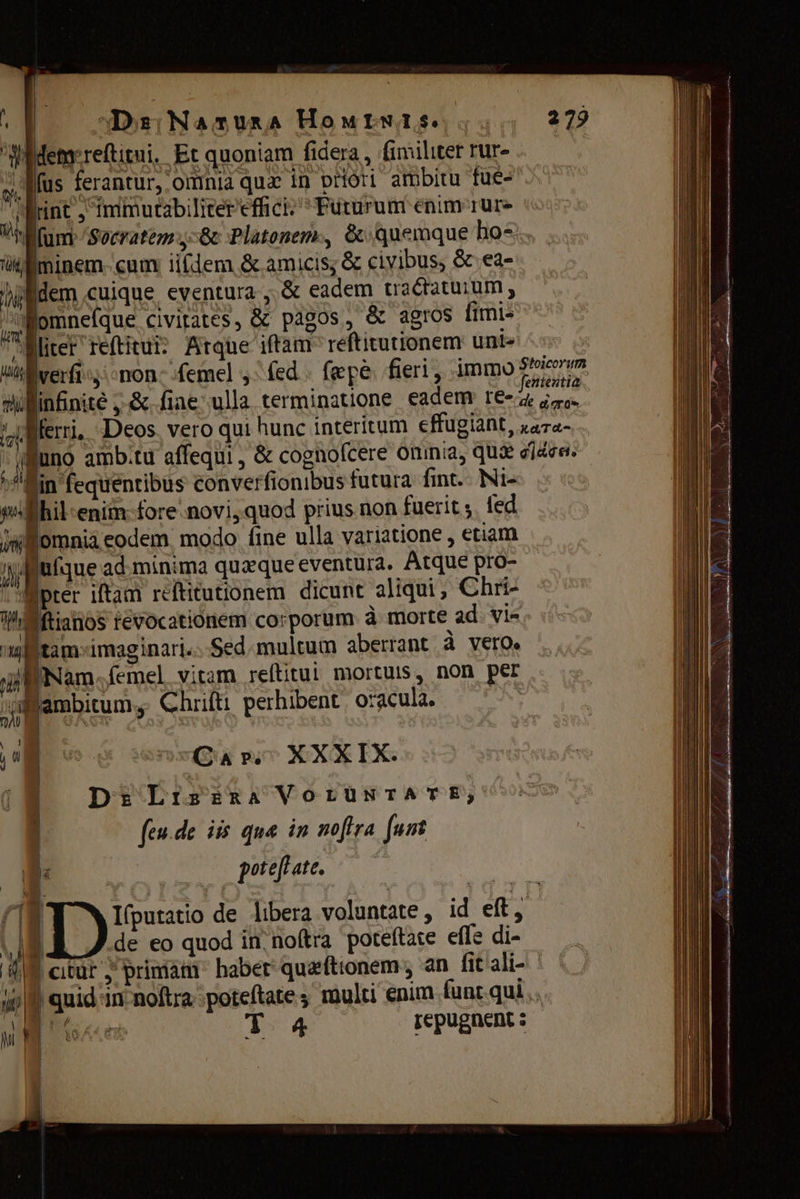 DE NATURA HOMINIS. 279
dem reſtitui. Et quoniam ſidera, ſimiliter rur-
ſus ferantur, omnia quæ in priori ambitu fue-
rint, immutabiliter effici. Futurum enim rur-
ſum Socratem, & Platonem, & quemque ho-
minem cum iiſdem & amicis, & civibus, & ea-
dem cuique eventura, & eadem tractaturum,
omneſque civitates, & pagos, & agros ſimi-
liter reſtitui: Atque iſtam reſtitutionem uni-
verſi, non ſemel, ſed ſæpè fieri, immo
Stoicorum
ſententia
infinitè, & ſine ulla terminatione eadem re-
ferri. Deos vero qui hunc interitum effugiant,
uno ambitu aſſequi, & cognoſcere omnia, quæ
in ſequentibus converſionibus futura ſint. Ni-
hil enim fore novi, quod prius non fuerit, ſed
omnia eodem modo ſine ulla variatione, etiam
uſque ad minima quæque eventura. Atque pro-
pter iſtam reſtitutionem dicunt aliqui, Chri-
ſtianos revocationem corporum à morte ad vi-
tam imaginari. Sed multum aberrant à vero.
Nam ſemel vitam reſtitui mortuis, non per
ambitum, Chriſti perhibent oracula.
CAP. XXXIX.
DE LIBERA VOLUNTATE,
ſeu de iis quæ in noſtra ſunt
poteſtate.
DIſputatio de libera voluntate, id eſt,
de eo quod in noſtra poteſtate eſſe di-
citur, primam habet quæſtionem, an ſit ali-
quid in noſtra poteſtate; multi enim ſunt qui
T 4 repugnent: